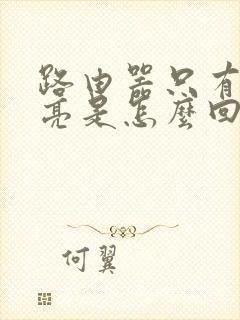 路由器只有
亮是怎麼回
何翼